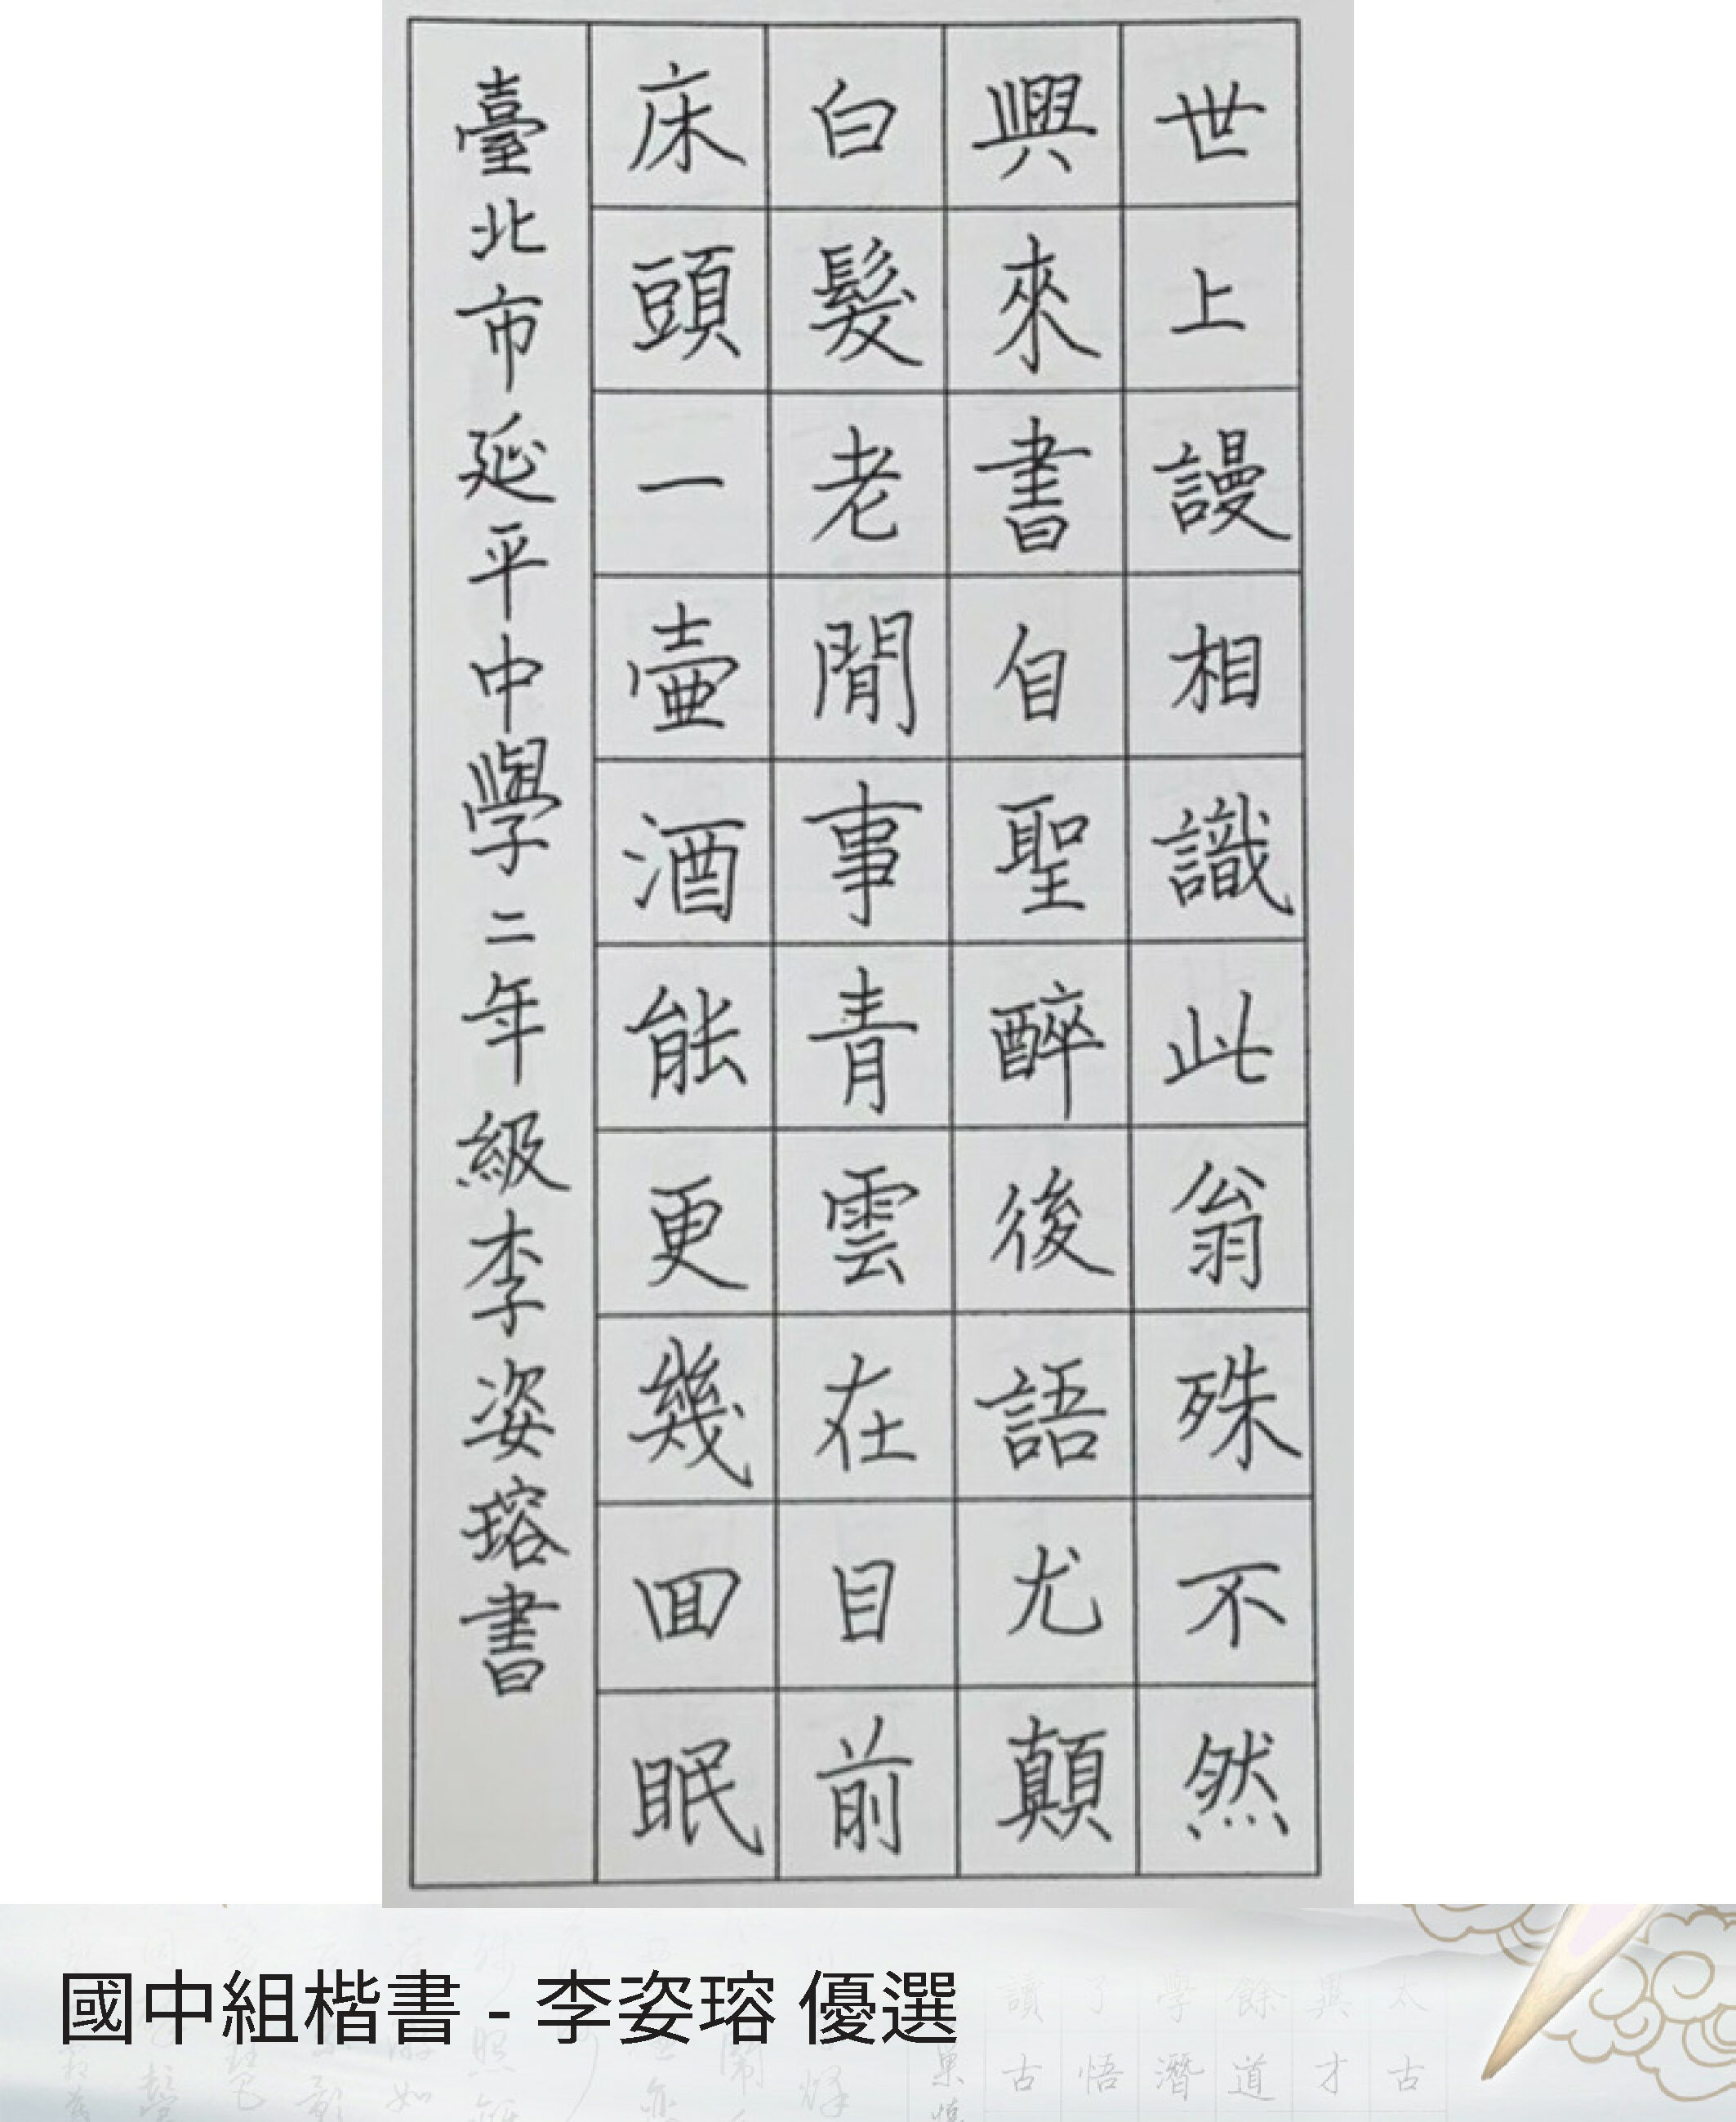 世上謾相識此翁殊不然
興來書自聖醉後語尤顛
白髮老閒事青雲在目前
床頭一壺酒能更幾回眠
臺北市延平中學二年級李姿瑢書
國中組楷書 - 李姿瑢 優選